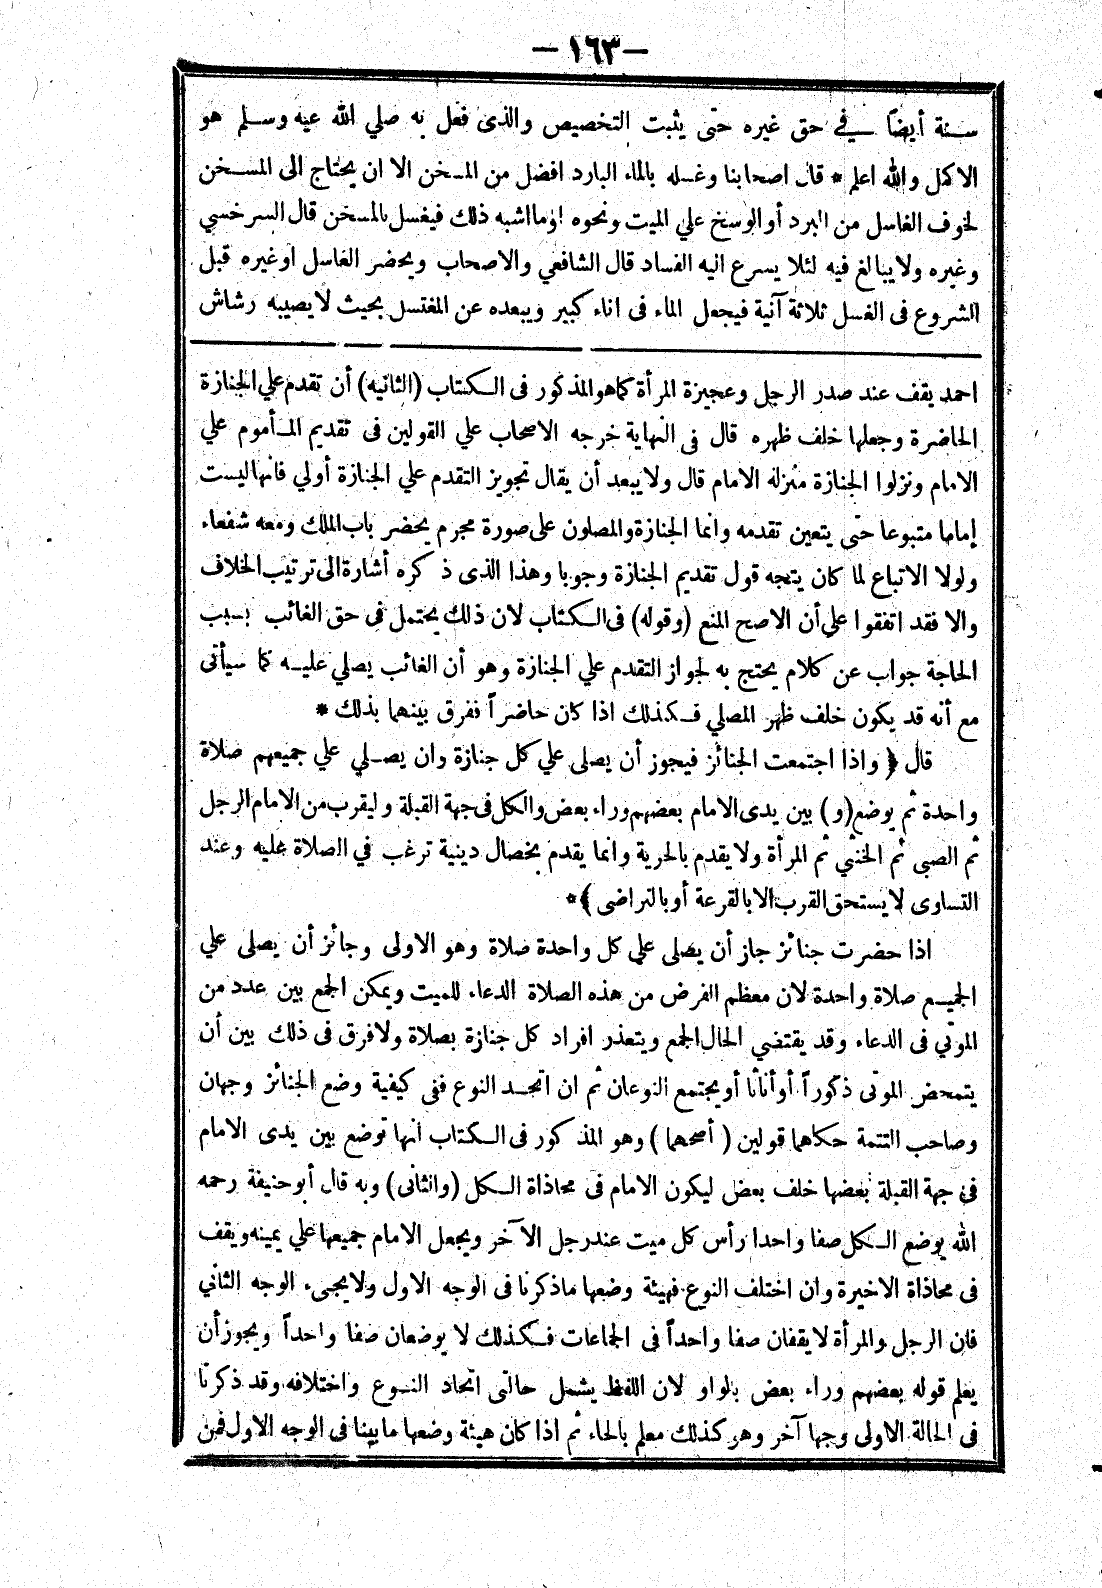 — ١٦٣ —
سنة أيضاً في حق غيره حتى يثبت التخصيص والذى فعل به صلي الله عيه وسلم هو
الاكمل والله اعلم * قال اصحابنا وغسله بالماء البارد افضل من المسخن الا ان يحتاج الى المسخن
لخوف الغاسل من البرد أو الوسخ علي الميت ونحوه او مااشبه ذلك فيغسل بالمسخن قال السرخسي
وغيره ولا يبالغ فيه لئلا يسرع اليه الفساد قال الشافعي والاصحاب ويحضر الغاسل اوغيره قبل
الشروع فى الغسل ثلاثة آنية فيجعل الماء فى اناء كبير ويبعده عن المغتسل بحيث لا يصيبه رشاش
احمد يقف عند صدر الرجل وعجيزة المرأة كماهوالمذكور فى الكتاب (الثانيه) أن تقدم علي الجنازة
الحاضرة وجعلها خلف ظهره قال فى النهاية خرجه الاصحاب علي القولين فى تقديم المأموم علي
الامام ونزلوا الجنازة منزله الامام قال ولا يبعد أن يقال تجويز التقدم علي الجنازة أولي فانها ليست
إماما متبوعا حتى يتعين تقدمه وانما الجنازة والمصلون على صورة مجرم يحضر باب الملك ومعه شفعاء
ولولا الاتباع لما كان يتجه قول تقديم الجنازة وجوبا وهذا الذى ذكره أشارة الى ترتيب الخلاف
والا فقد اتفقوا علي أن الاصح المنع (وقوله) فى الكتاب لان ذلك يحتمل فى حق الغائب بسبب
الحاجة جواب عن كلام يحتج به لجواز التقدم علي الجنازة وهو أن الغائب يصلي عليه كما سيأتى
مع أنه قد يكون خلف ظهر المصلي فكذلك اذا كان حاضراً ففرق بينهما بذلك *
قال ﴿ واذا اجتمعت الجنائز فيجوز أن يصلى علي كل جنازة وان يصلي علي جميعهم صلاة
واحدة ثم يوضع (و) بين يدى الامام بعضهم وراء بعض والكل فى جهة القبلة وليقرب من الامام الرجل
ثم الصبى ثم الخنثي ثم المرأة ولا يقدم بالحرية وانما يقدم بخصال دينية ترغب في الصلاة عليه وعند
التساوى لا يستحق القرب الا بالقرعة أو بالتراضى ﴾*
اذا حضرت جنائز جاز أن يصلى علي كل واحدة صلاة وهو الاولى وجائز أن يصلى علي
الجميع صلاة واحدة لان معظم الغرض من هذه الصلاة الدعاء للميت ويمكن الجمع بين عدد من
الموتي فى الدعاء وقد يقتضي الحال الجمع ويتعذر افراد كل جنازة بصلاة ولا فرق فى ذلك بين أن
يتمحض الموتى ذكوراً أو أناثا أو يجتمع النوعان ثم ان اتحد النوع ففى كيفية وضع الجنائز وجهان
وصاحب التتمة حكاهما قولين ( أصحهما ) وهو المذكور فى الكتاب انها توضع بين يدى الامام
فى جهة القبلة بعضها خلف بعض ليكون الامام فى محاذاة الكل (والثانى) وبه قال أبو حنيفة رحمه
الله يوضع الكل صفا واحدا رأس كل ميت عند رجل الآخر ويجعل الامام جميعها علي يمينه ويقف
فى محاذاة الاخيرة وان اختلف النوع فهيئة وضعها ماذكرنا فى الوجه الاول ولا يجىء الوجه الثاني
فان الرجل والمرأة لا يقفان صفا واحداً فى الجماعات فكذلك لا يوضعان صفا واحداً ويجوز أن
يعلم قوله بعضهم وراء بعض بالواو لان اللفظ يشمل حالتى اتحاد النوع واختلافه وقد ذكرنا
فى الحالة الاولى وجها آخر وهو كذلك معلم بالحاء ثم اذا كان هيئة وضعها ما بينا فى الوجه الاول فمن